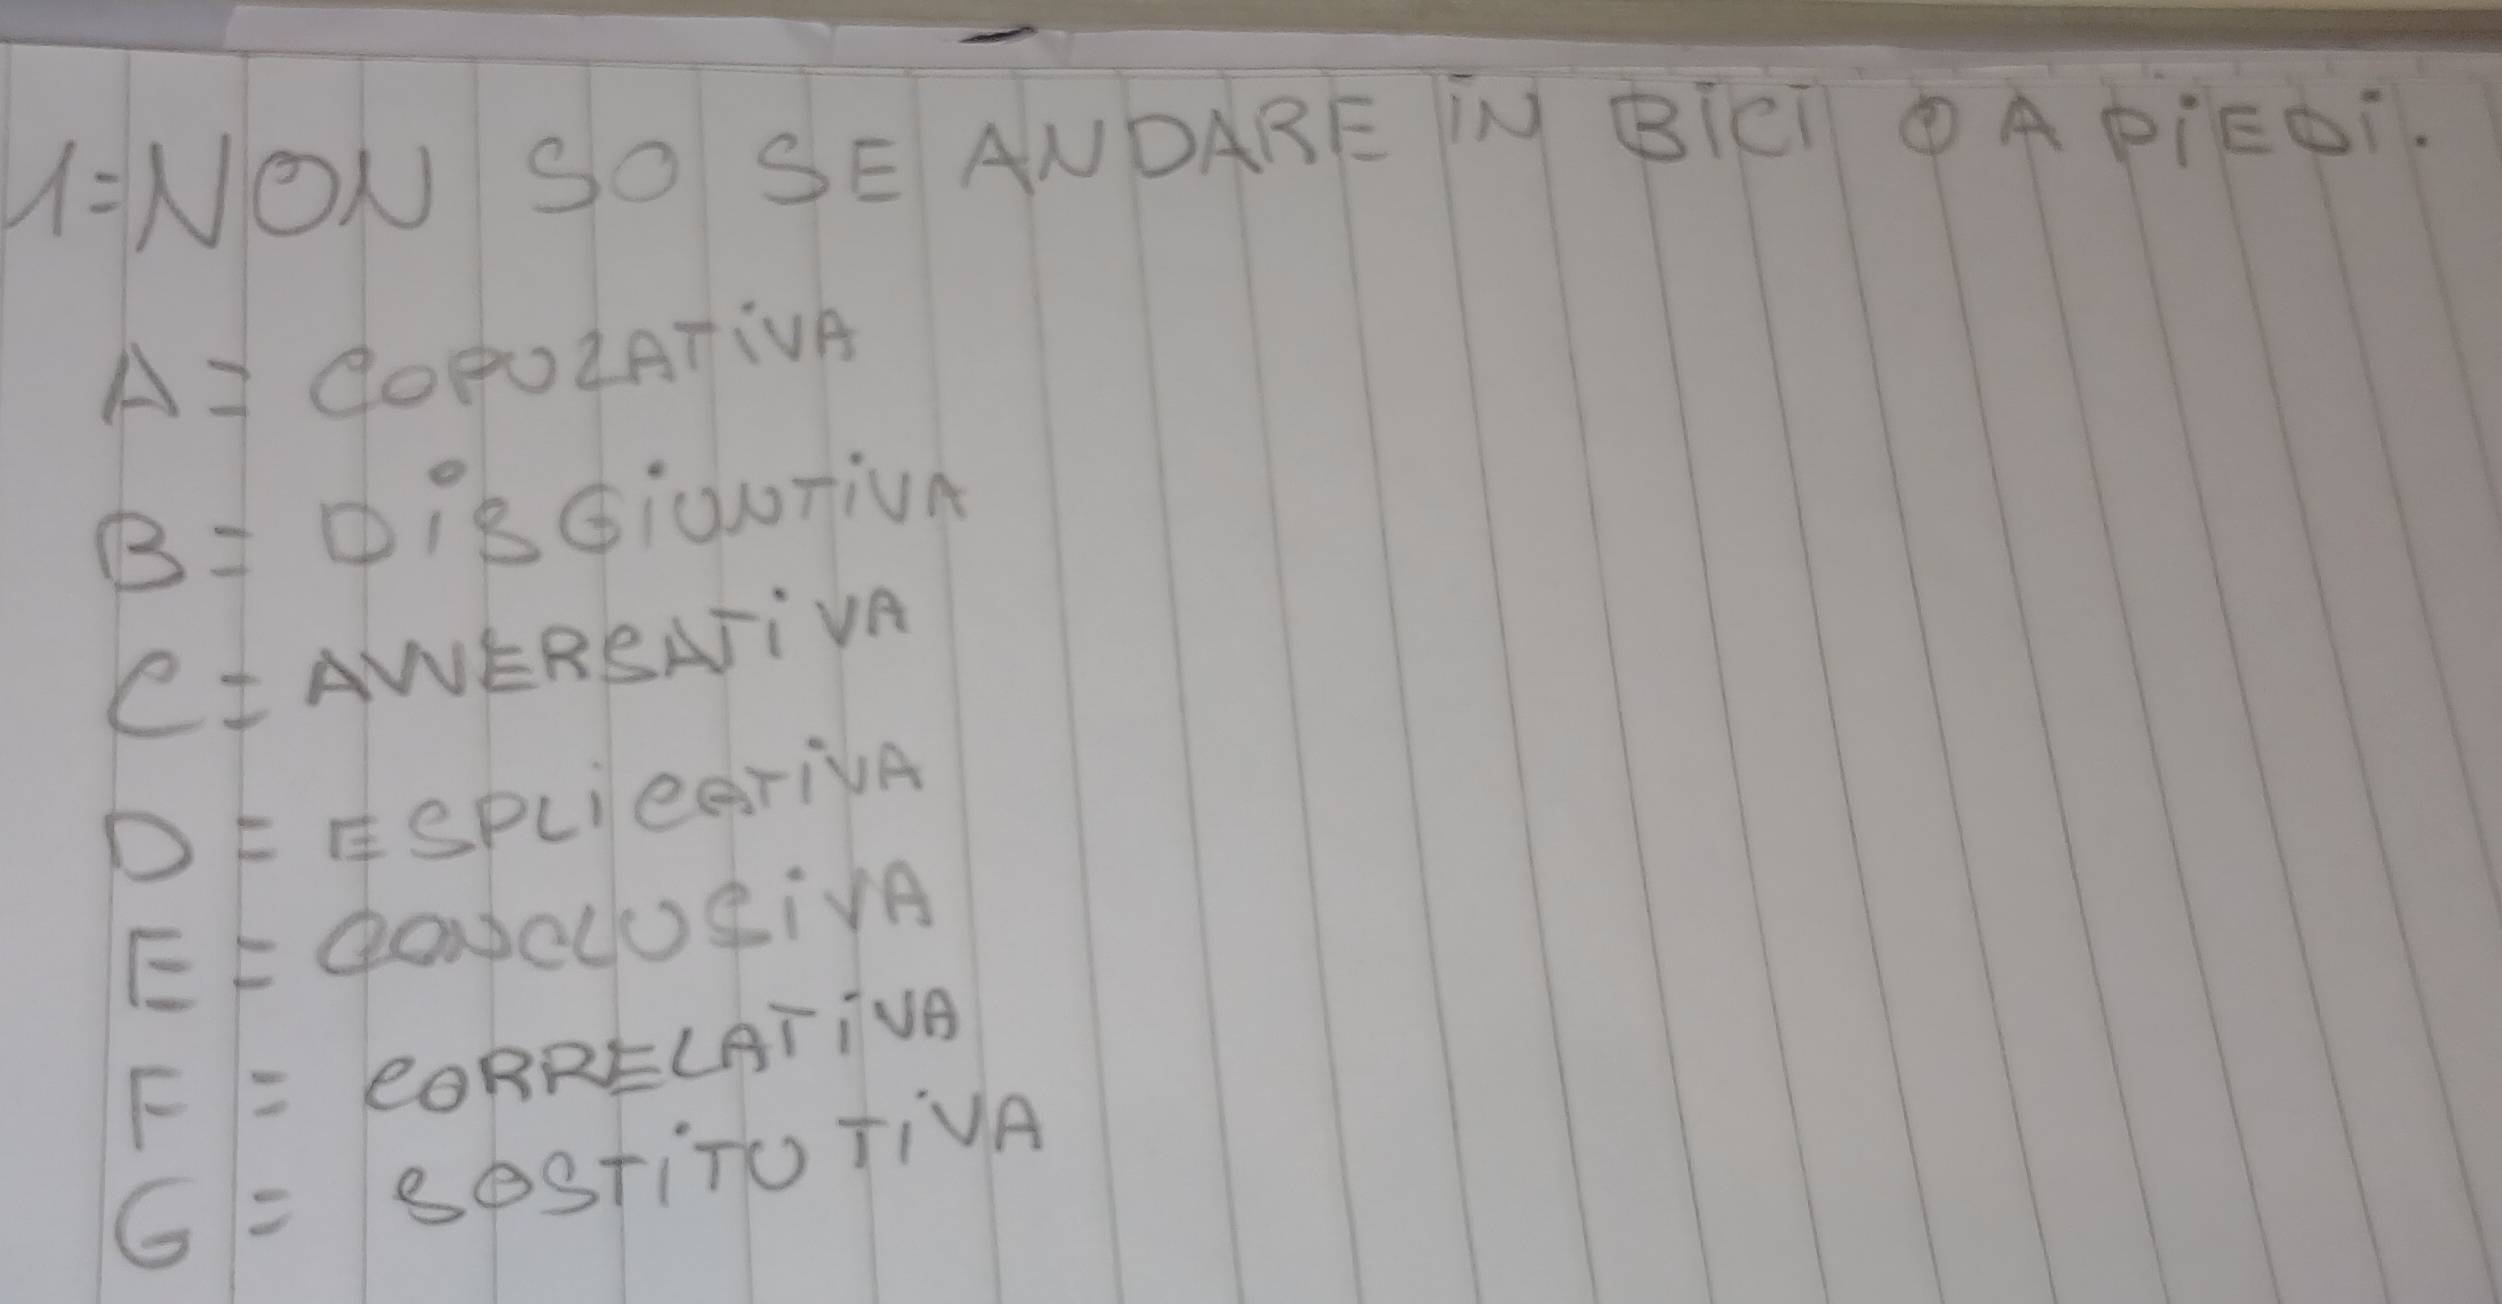 1=NON SO SE ANDARE IN BICI O A PIEDI.
A= COPULATIVA
B= DISGIUNTIVA
C= AVVERSATIVA
D= ESPLICATIVA
E= CONCLUSIVA
F= CORRELATIVA
G= SOSTITUTIVA